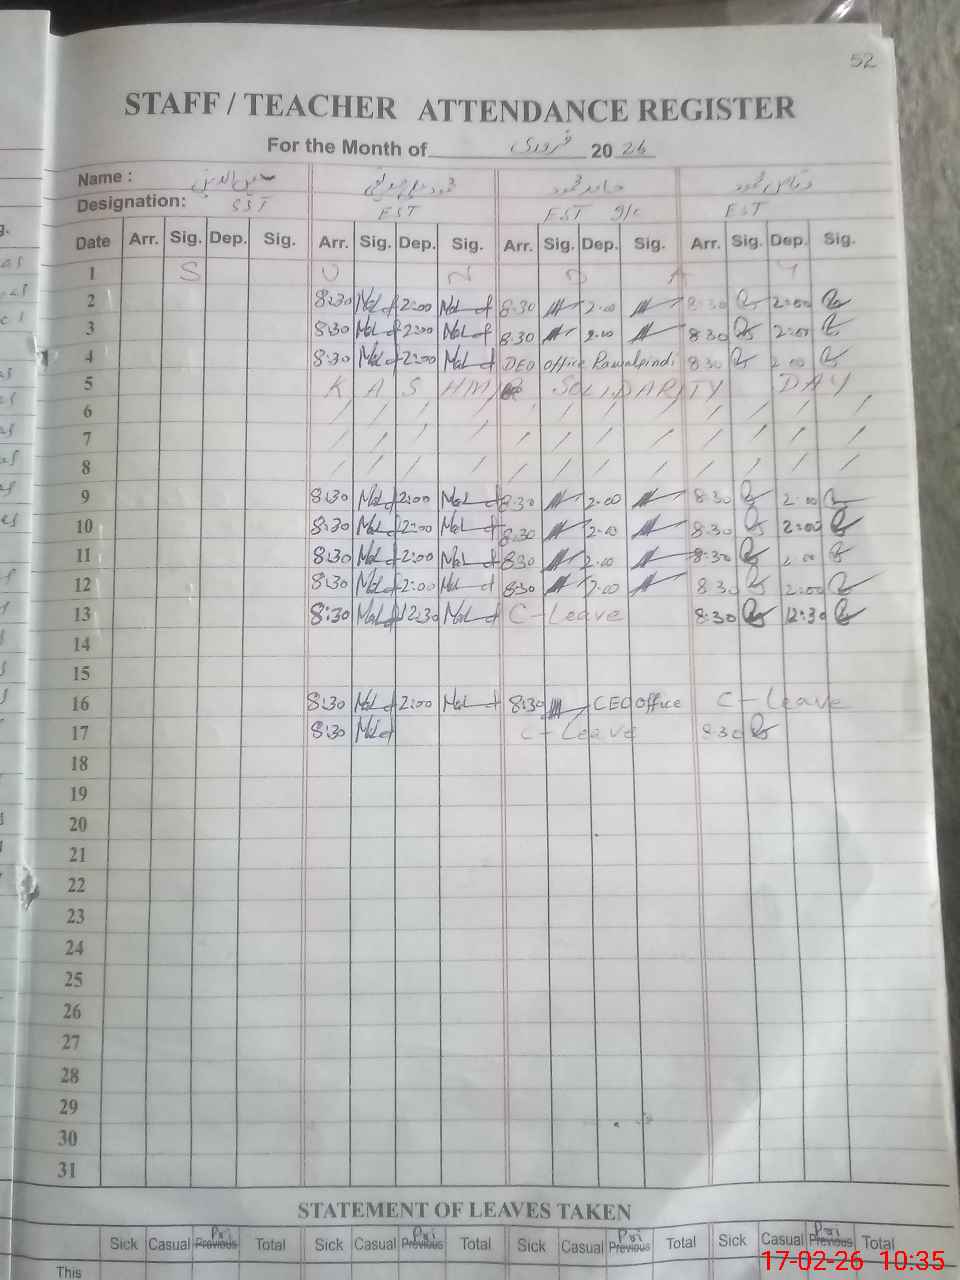 52
STAFF / TEACHER ATTENDANCE REGISTER
For the Month of فروری 20 26
Name :
Designation: SST EST EST I/C EST
Date Arr. Sig. Dep. Sig. Arr. Sig. Dep. Sig. Arr. Sig. Dep. Sig. Arr. Sig. Dep. Sig.
1 S U N D A Y
2 8:30 2:00 8:30 2:00 8:30 2:00
3 8:30 2:00 8:30 2:00 8:30 2:00
4 8:30 2:00 DEO office Rawalpindi 8:30 2:00
5 K A S HMIR SOLIDARITY DAY
6
7
8
9 8:30 2:00 8:30 2:00 8:30 2:00
10 8:30 2:00 8:30 2:00 8:30 2:00
11 8:30 2:00 8:30 2:00 8:30 2:00
12 8:30 2:00 8:30 2:00 8:30 2:00
13 8:30 12:30 C-Leave 8:30 12:30
14
15
16 8:30 2:00 8:30 CEO office C-Leave
17 8:30 C-Leave 8:30
18
19
20
21
22
23
24
25
26
27
28
29
30
31
STATEMENT OF LEAVES TAKEN
Sick Casual Previous Total Sick Casual Previous Total Sick Casual Previous Total Sick Casual Previous Total
This
17-02-26 10:35